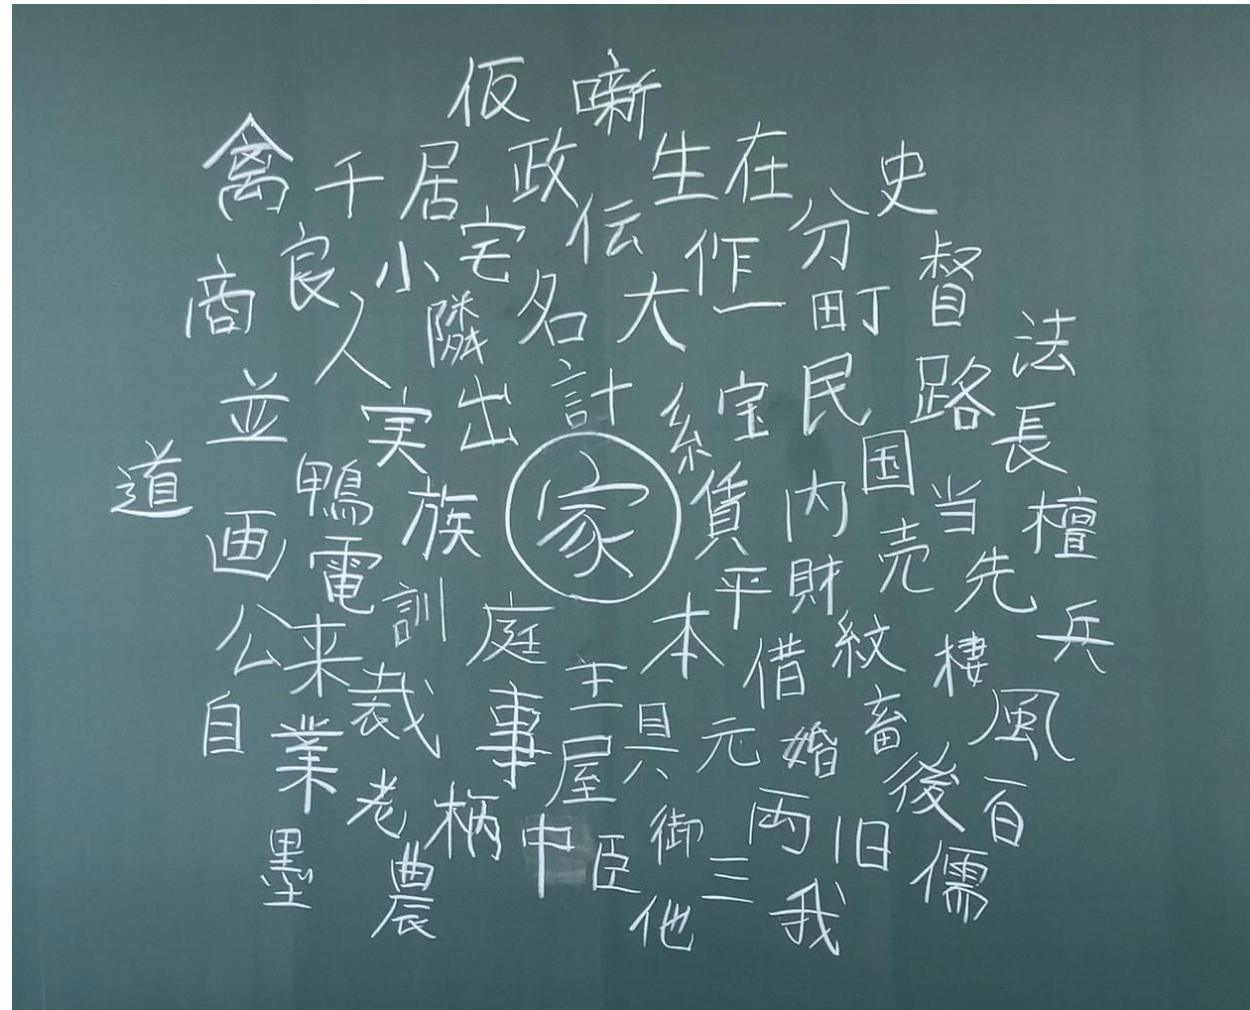 仮 噺
禽 千 居 政 生 在 史
良 小 宅 伝 作 分 督
商 人 隣 名 大 一 町 法
並 実 出 計 系 宝 民 路 長
道 鴨 族 家 賃 内 国 当 檀
画 電 訓 庭 平 財 売 先
公 来 裁 主 本 借 紋 棲 兵
自 業 事 屋 具 元 婚 畜 風
老 柄 中 臣 御 両 旧 後 百
墨 農 他 三 我 儒